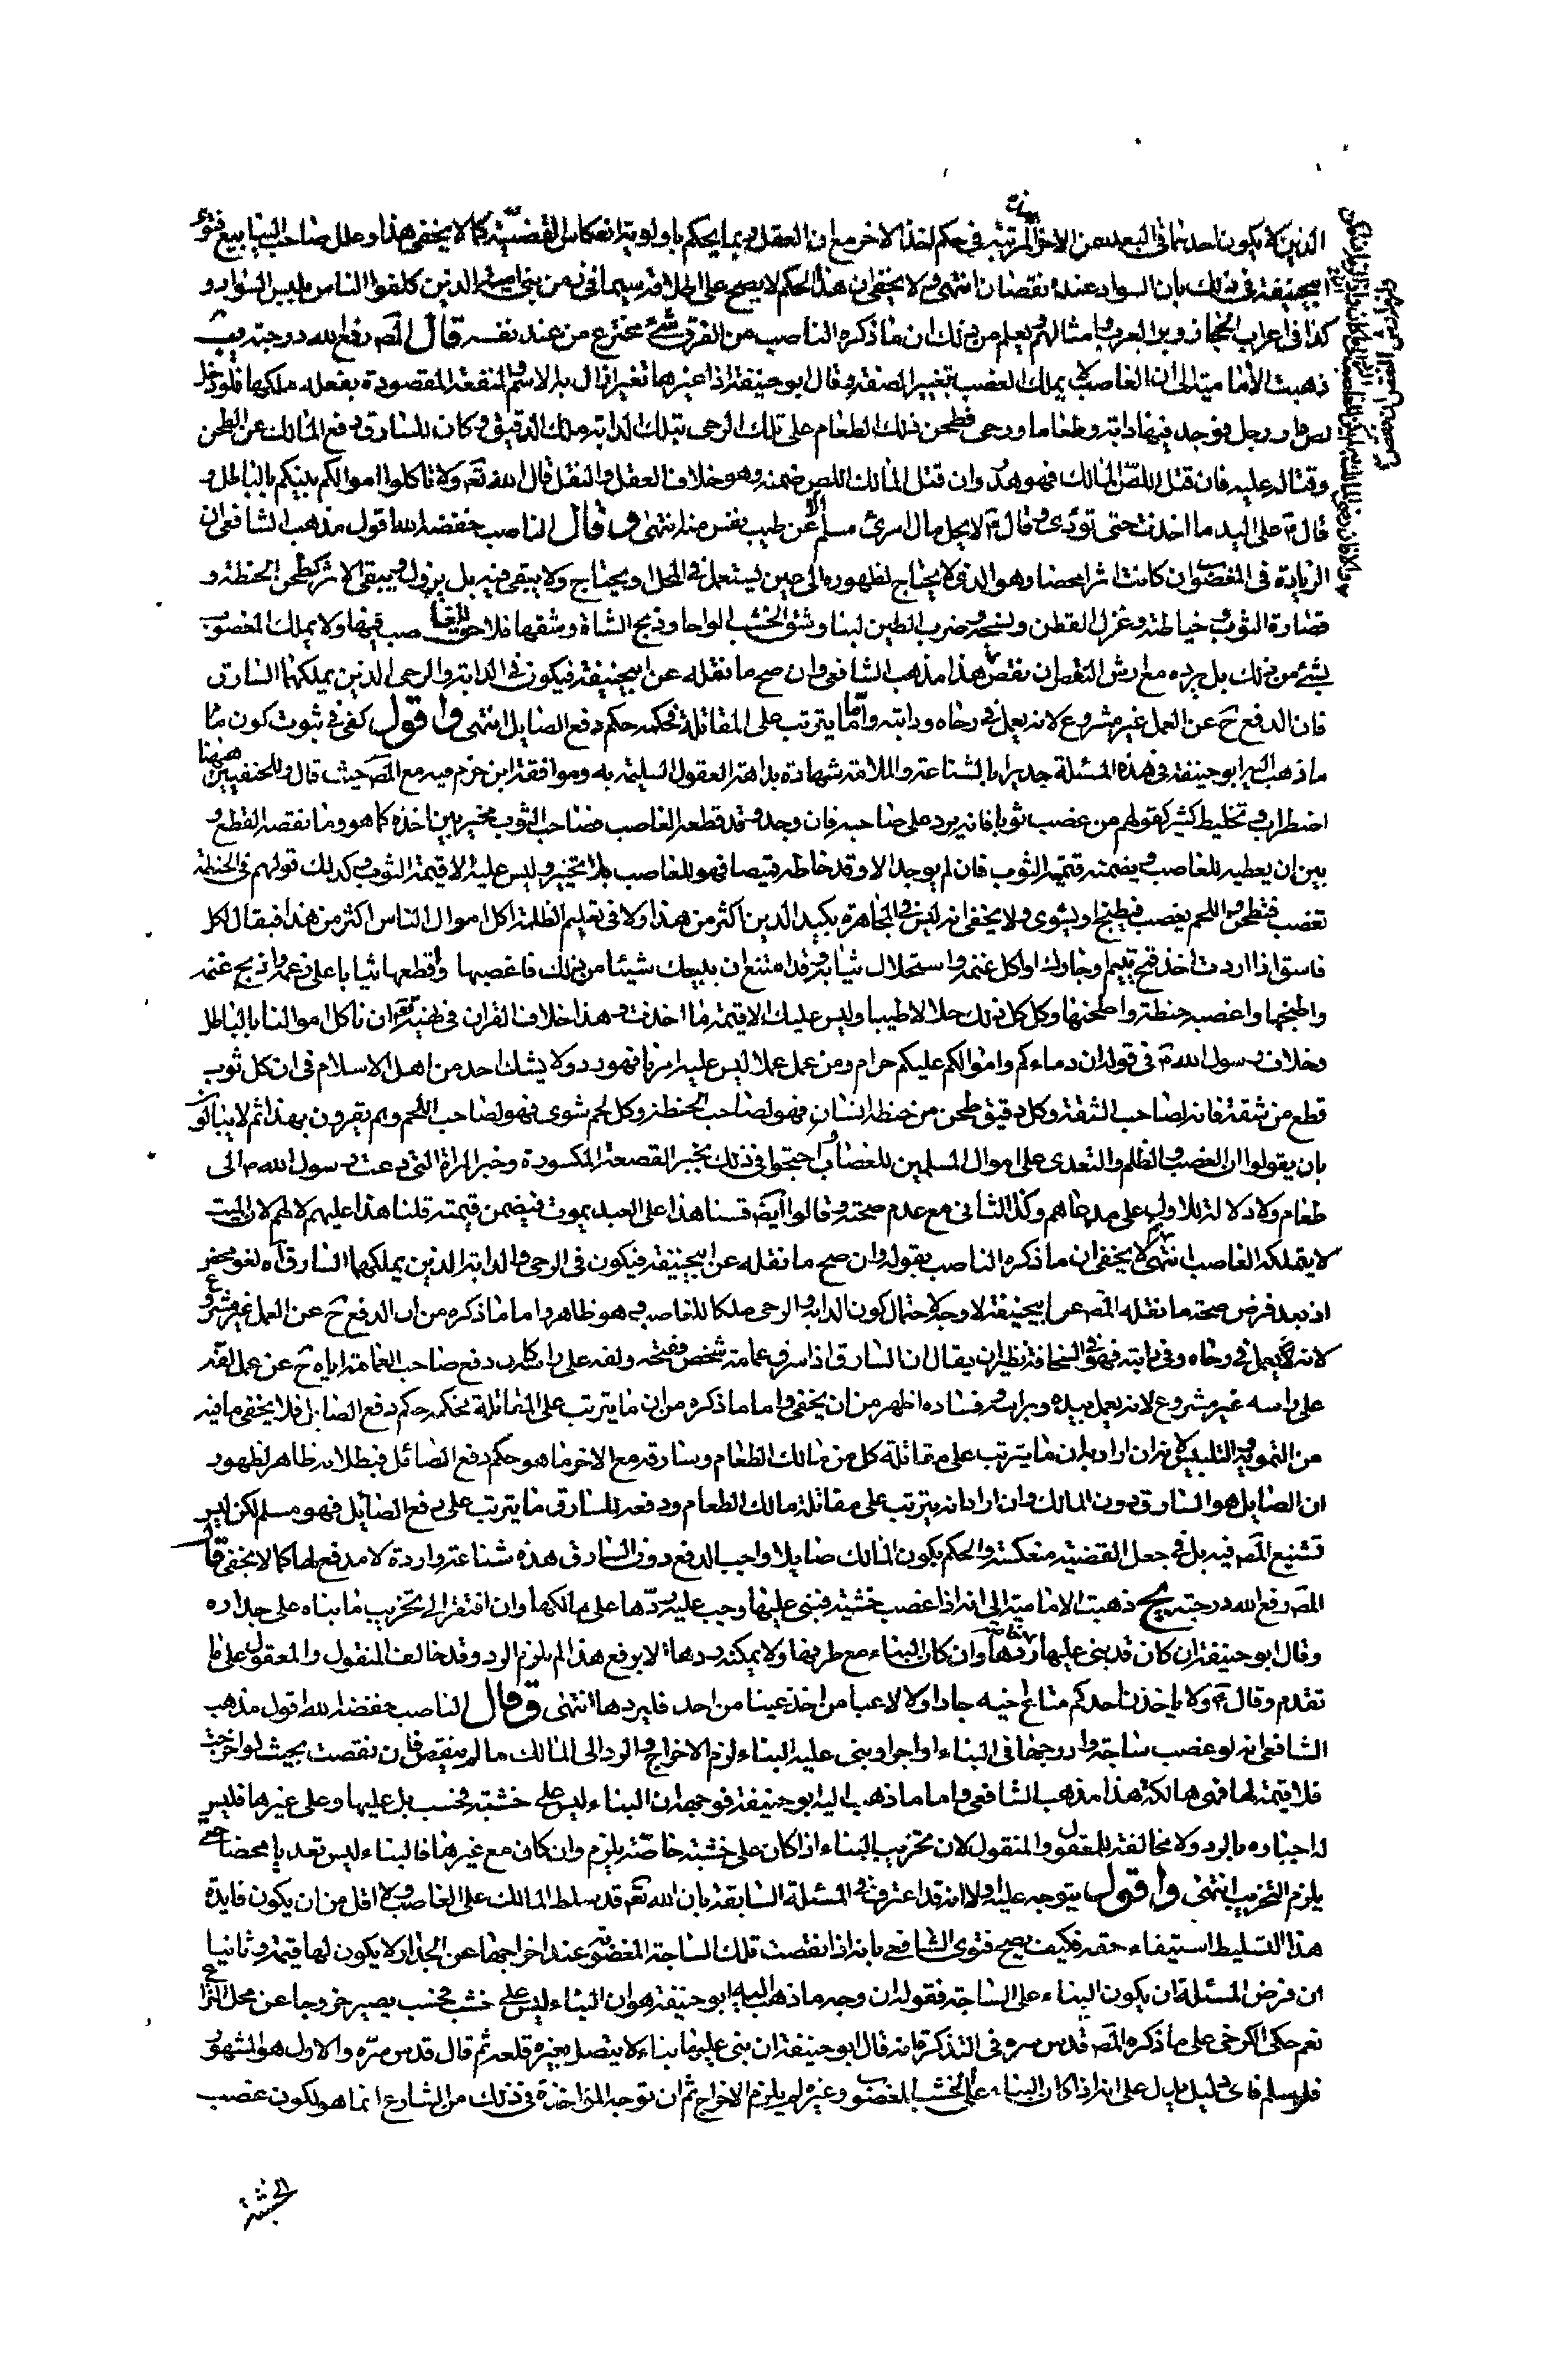 الذين لا يكون احدهما في البعد عن الاخر المرتبة في حكم اخذ الاخر مع ان العقل ربما يحكم باولوية انعكاس القضية كما لا يخفى هذا وعلل صاحب الينابيع فتوى
ابيحنيفة في ذلك بان السواد عنده نقصان انتهى ولا يخفى ان هذا الحكم لا يصح على اطلاقه سيما في زمن بني امية الذين كلفوا الناس بلبس السواد و
كذا في اعراب الحجاز وبر العرب وامثالهم ويعلم من ذلك ان ما ذكره الناصب من الفرق شئ مخترع من عند نفسه قال المصـ رفع الله درجته يب
ذهبت الأمامية الى ان الغاصب لا يملك الغصب بتغيير الصفة وقال ابو حنيفة اذا غيرها تغيرا ازال به الاسم والمنفعة المقصودة بفعله ملكها فلو دخل
لص دار رجل فوجد فيها دابة وطعاما ورحى فطحن ذلك الطعام على تلك الرحى بتلك الدابة ملك الدقيق وكان للسارق دفع المالك عن الطحن
وقتاله عليه فان قتل اللص المالك فهو هدر وان قتل المالك اللص ضمنه وهو خلاف العقل والنقل قال الله تع ولا تاكلوا اموالكم بينكم بالباطل و
قال ص على اليد ما اخذت حتى تؤدى وقال ص لا يحل مال امرئ مسلم الا عن طيب نفس منه انتهى وقال الناصب خفضه الله اقول مذهب الشافعي ان
الزيادة في المغصوب ان كانت اثرا محضا وهو الذي لا يحتاج لظهوره الى حين يستعمل في المحل ويحتاج ولا يبقى فيه بل يزول ويبقى الاثر كطحن الحنطة و
قصارة الثوب وخياطته وغزل القطن ونسجه وضرب الطين لبنا وشق الخشب الواحا وذبح الشاة وشقها فلا حق للغاصب فيها ولا يملك المغصوب
بشئ من ذلك بل يرده مع ارش النقص ان نقص هذا مذهب الشافعي وان صح ما نقله عن ابيحنيفة فيكون في الدابة والرحى الذين يملكهما السارق
فان الدفع ح عن العمل غير مشروع لانه يعمل في رحاه ودابته واما ما يترتب على المقاتلة فحكمه حكم دفع الصايل انتهى واقول كفى في ثبوت كون ما
ما ذهب اليه ابو حنيفة في هذه المسئلة جديرا بالشناعة والملامة شهادة بداهة العقول السليمة به وموافقة ابن حزم فيه مع المصـ حيث قال وللحنفيين هيهنا
اضطراب وتخليط كثير كقولهم من غصب ثوبا فانه يرد على صاحبه فان وجد وقد قطعه الغاصب فصاحب الثوب مخير بين اخذه كما هو وما نقصه القطع و
بين ان يعطيه للغاصب ويضمنه قيمة الثوب فان لم يوجد الا وقد خاطه قميصا فهو للغاصب بلا تخيير وليس عليه الا قيمة الثوب وكذلك قولهم في الحنطة
تغصب فتطحن واللحم يغصب فيطبخ او يشوى ولا يخفى انه ليس في المجاهرة بكيد الدين اكثر من هذا ولا في تعليم الظلمة اكل اموال الناس اكثر من هذا فيقال لكل
فاسق اذا اردت اخذ قمح يتيم او جارك او اكل غنمه واستحلال ثيابه وقد امتنع ان يبيعك شيئا من ذلك فاغصبها واقطعها ثيابا على رغمه واذبح غنمه
واطبخها واغصبه حنطته واطحنها وكل كل ذلك حلالا طيبا وليس عليك الا قيمة ما اخذت وهذا خلاف القران في نهيه تع ان ناكل اموالنا بالباطل
وخلاف رسول الله ص في قوله ان دماءكم واموالكم عليكم حرام ومن عمل عملا ليس عليه امرنا فهو رد ولا يشك احد من اهل الاسلام في ان كل ثوب
قطع من شقة فانه لصاحب الشقة وكل دقيق طحن من حنطة انسان فهو لصاحب الحنطة وكل لحم شوى فهو لصاحب اللحم وهم يقرون بهذا ثم لا يبالون
بان يقولوا ان الغصب والظلم والتعدى على اموال المسلمين للغصاب واحتجوا في ذلك بخبر القصعة المكسورة وخبر المراة التي دعت رسول الله ص الى
طعام ولا دلالة للاول على مدعاهم وكذا الثاني مع عدم صحته وقالوا ايضـ قسنا هذا على العبد يموت فيضمن قيمته قلنا هذا عليهم لا لهم لان الميت
لا يتملكه الغاصب انتهى ثم لا يخفى ان ما ذكره الناصب بقوله وان صح ما نقله عن ابيحنيفة فيكون في الرحى والدابة الذين يملكهما السارق آه لغو محض
اذ بعد فرض صحة ما نقله المصـ عن ابيحنيفة لا وجه لاحتمال كون الدابة والرحى ملكا للغاصب وهو ظاهر واما ما ذكره من ان الدفع ح عن العمل غير مشروع
لانه لا يعمل في رحاه وفي دابته فهو في السخافة نظير ان يقال ان السارق اذا سرق عمامة شخص وفتحه ولفه على راسه كان دفع صاحب العمامة اياه ح عن عمل لفه
على راسه غير مشروع لانه يعمل بيده وبراسه وفساده اظهر من ان يخفى واما ما ذكره من ان ما يترتب على المقاتلة فحكمه حكم دفع الصايل فلا يخفى ما فيه
من التمويه والتلبيس لانه ان اراد به ان ما يترتب على مقاتلة كل من مالك الطعام وسارقه مع الاخر ما هو حكم دفع الصائل فبطلانه ظاهر لظهور
ان الصايل هو السارق دون المالك وان اراد انه يترتب على مقاتلة مالك الطعام ودفعه للسارق ما يترتب على دفع الصايل فهو مسلم لكن ليس
تشنيع المصـ فيه بل في جعل القضية منعكسة والحكم بكون المالك صايلا واجب الدفع دون السارق هذه شناعة واردة لا مدفع لها كما لا يخفى قال
المصـ رفع الله درجته يج ذهبت الامامية الى انه اذا غصب خشبة فبنى عليها وجب عليه ردها على مالكها وان افتقر الى تخريب ما بناه على جداره
وقال ابو حنيفة ان كان قد بنى عليها خاصة ردها وان كان البناء مع طرفها ولا يمكنه ردها الا برفع هذا لم يلزم الرد وقد خالف المنقول والمعقول على ما
تقدم وقال ص ولا ياخذن احدكم متاع اخيه جادا ولا لاعبا من اخذ عينا من احد فليردها انتهى وقال الناصب خفضه الله اقول مذهب
الشافعي انه لو غصب ساجة وادرجها في البناء او اجرا وبنى عليه البناء لزم الاخراج والرد الى المالك ما لم ينقص فان نقصت بحيث لو اخرجت
فلا قيمة لها فهي هالكة هذا مذهب الشافعي واما ما ذهب اليه ابو حنيفة فوجهه ان البناء ليس على خشبته فحسب بل عليها وعلى غيرها فليس
له اجباره بالرد ولا مخالفة للمعقول والمنقول لان تخريب البناء اذا كان على خشبته خاصة يلزم وان كان مع غيرها فالبناء ليس تعديا محضا حتى
يلزم التخريب انتهى واقول يتوجه عليه اولا انه قد اعترف في المسئلة السابقة بان الله تع قد سلط المالك على الغاصب ولا اقل من ان يكون فايدة
هذا التسليط استيفاء حقه فكيف يصح فتوى الشافعي بانه اذا نقصت تلك الساجة المغصوبة عند اخراجها عن الجدار لا يكون لها قيمة وثانيا
ان فرض المسئلة ان يكون البناء على الساجة فقوله ان وجه ما ذهب اليه ابو حنيفة هو ان البناء ليس على خشب فحسب يصير خروجا عن محل النزاع
نعم حكى الكرخي على ما ذكره المصـ قدس سره في التذكرة انه قال ابو حنيفة ان بنى عليها بناء لا يتصل بغيره قلعه ثم قال قدس سره والاول هو المشهور
فلو سلم فاى دليل يدل على انه اذا كان البناء على الخشب المغصوب وغيره لم يلزم الاخراج ثم ان توجه المؤاخذة في ذلك من الشارع انما هو لكون غصب
الخشبة